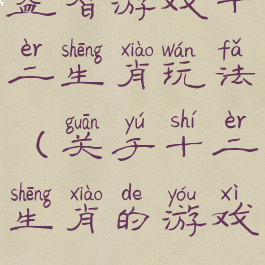 益智游戏十
èr shēng xiào wán fǎ
二生肖玩法
guān yú shí èr
(关于十二
shēng xiào de yóu xì
生肖的游戏